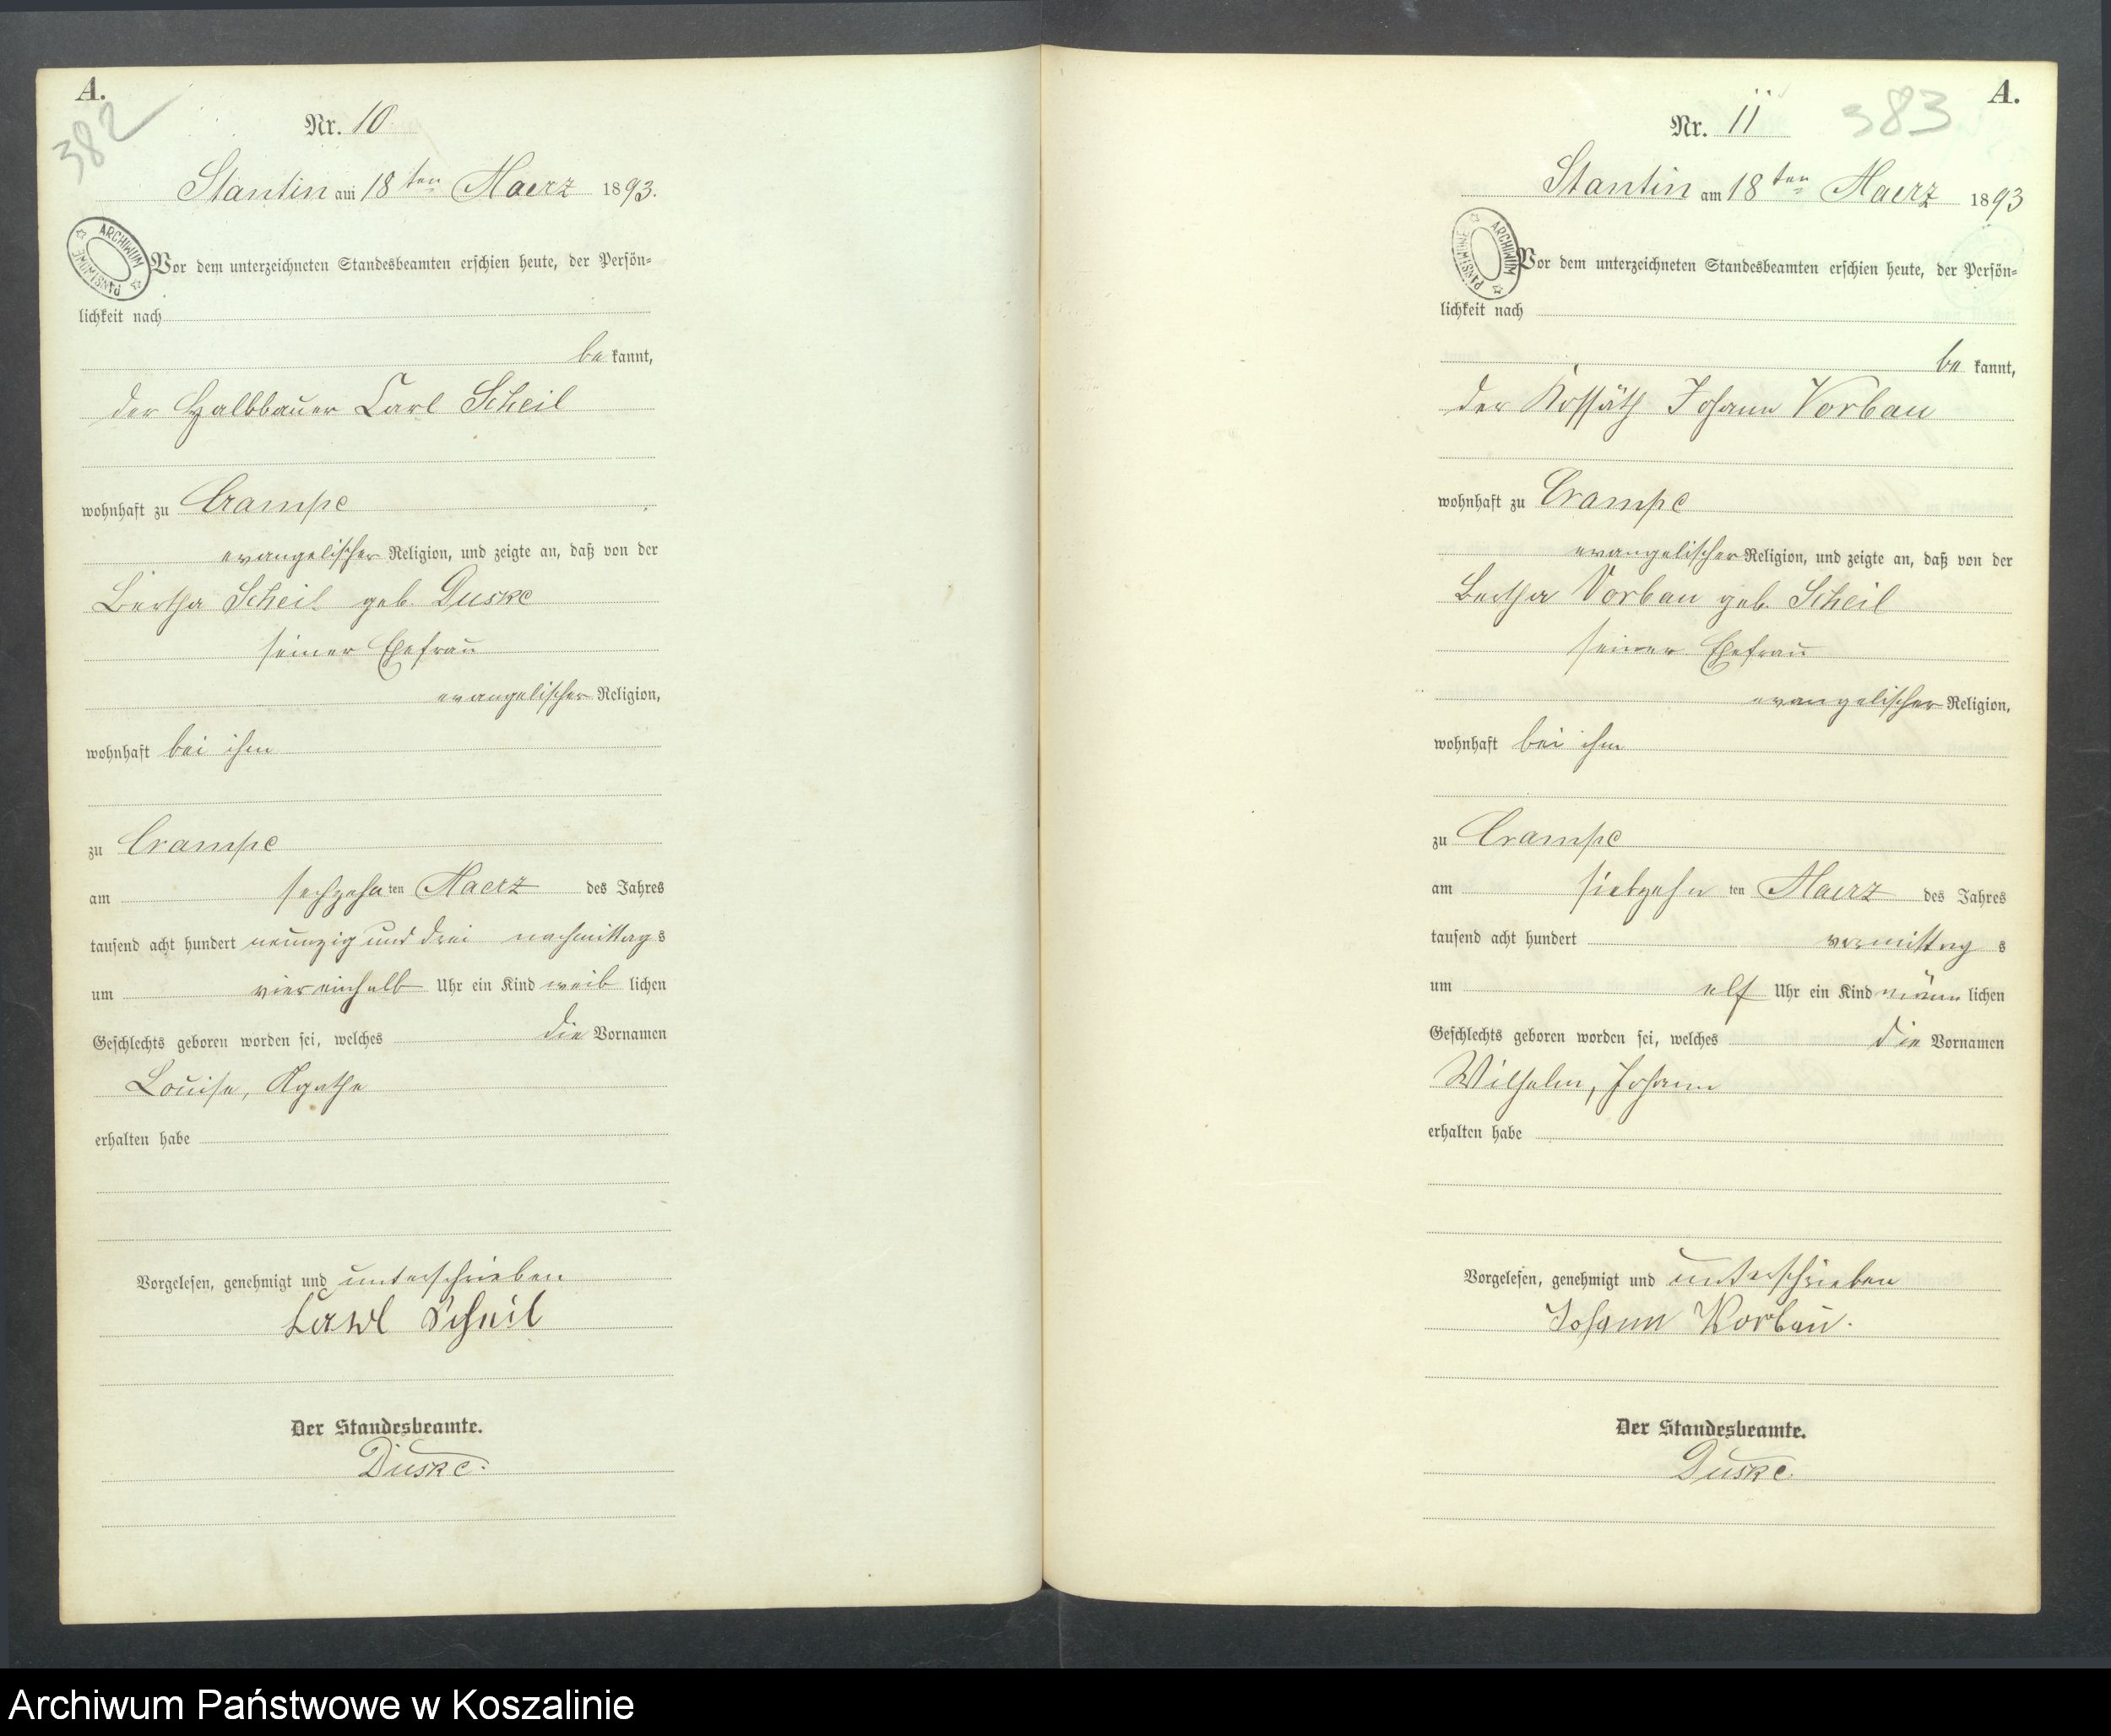 A.
382
Nr. 10
Stantin am 18ten Maerz 1893.
ARCHIWUM PAŃSTWOWE
Vor dem unterzeichneten Standesbeamten erschien heute, der Persön=
lichkeit nach
be kannt,
der Halbbauer Carl Scheil
wohnhaft zu Crampe
evangelischer Religion, und zeigte an, daß von der
Bertha Scheil geb. Duske
seiner Ehefrau
evangelischer Religion,
wohnhaft bei ihm
zu Crampe
am sechzehn ten Maerz des Jahres
tausend acht hundert neunzig und drei nachmittag s
um viereinhalb Uhr ein Kind weib lichen
Geschlechts geboren worden sei, welches die Vornamen
Louise, Agathe
erhalten habe
Vorgelesen, genehmigt und unterschrieben
Carl Scheil
Der Standesbeamte.
Duske.
A.
383
Nr. 11
Stantin am 18ten Maerz 1893
ARCHIWUM PAŃSTWOWE
Vor dem unterzeichneten Standesbeamten erschien heute, der Persön=
lichkeit nach
be kannt,
der Kossäth Johann Vorbau
wohnhaft zu Crampe
evangelischer Religion, und zeigte an, daß von der
Bertha Vorbau geb. Scheil
seiner Ehefrau
evangelischer Religion,
wohnhaft bei ihm
zu Crampe
am siebzehn ten Maerz des Jahres
tausend acht hundert vormittag s
um elf Uhr ein Kind männ lichen
Geschlechts geboren worden sei, welches die Vornamen
Wilhelm, Johann
erhalten habe
Vorgelesen, genehmigt und unterschrieben
Johann Vorbau.
Der Standesbeamte.
Duske.
Archiwum Państwowe w Koszalinie